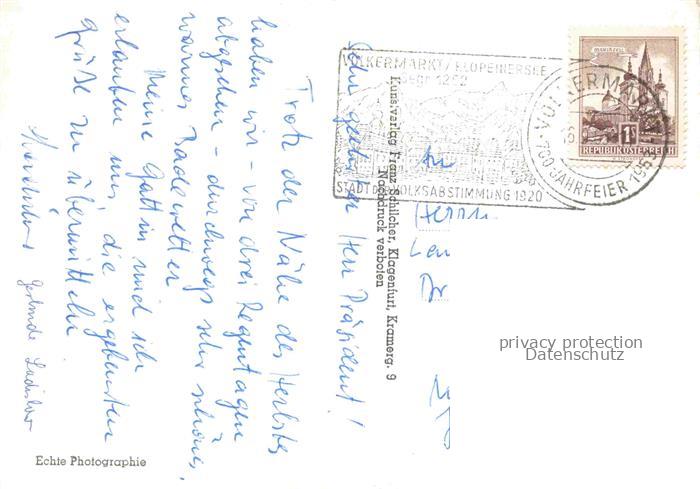 Sehr geehrter Herr Präsident!
Trotz der Nähe des Herbstes
haben wir – von drei Regentagen
abgesehen – durchwegs sehr schönes,
warmes Badewetter.
Meine Gattin und ich
erlauben uns, die ergebensten
Grüße zu übermitteln
Gertrude
Echte Photographie
Kunstverlag Franz Schilcher, Klagenfurt, Kramerg. 9
Nachdruck verboten
VÖLKERMARKT / KLOPEINERSEE
GEGR. 1252
STADT DER VOLKSABSTIMMUNG 1920
VÖLKERMARKT
700 JAHRFEIER 195
MARIAZELL
1S
REPUBLIK ÖSTERREICH
An
Herrn
Dr
privacy protection
Datenschutz